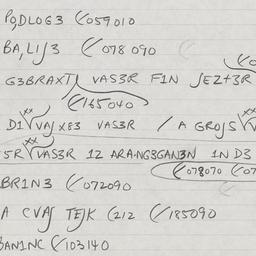 P0,DLOG3 (/059010
BA,LIJ3 (/078 090
G3BRAXT VAS3R F1N JEZ+3R
(/165040
D1 (/VAJX83 VAS3R / A GROJS
5R (/VAS3R 1Z ARANG3GAN3N 1N D3
(/078070
BR1N3 (/072090
A CVAJ TEJK (212 (/185090
BAN1NC (/103140